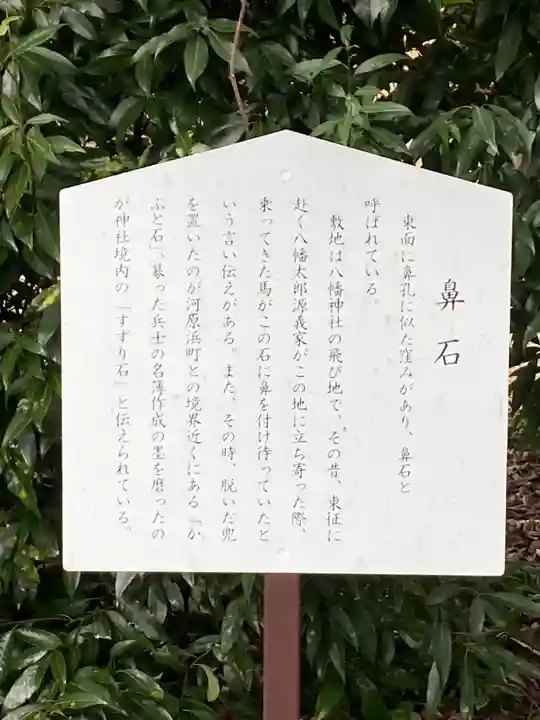 鼻石
東面に鼻孔に似た窪みがあり、鼻石と
呼ばれている。
敷地は八幡神社の飛び地で、その昔、東征に
赴く八幡太郎源義家がこの地に立ち寄った際、
乗ってきた馬がこの石に鼻を付け待っていたと
いう言い伝えがある。また、その時、脱いだ兜
を置いたのが河原浜町との境界近くにある「か
ぶと石」、募った兵士の名簿作成の墨を磨ったの
が神社境内の「すずり石」と伝えられている。